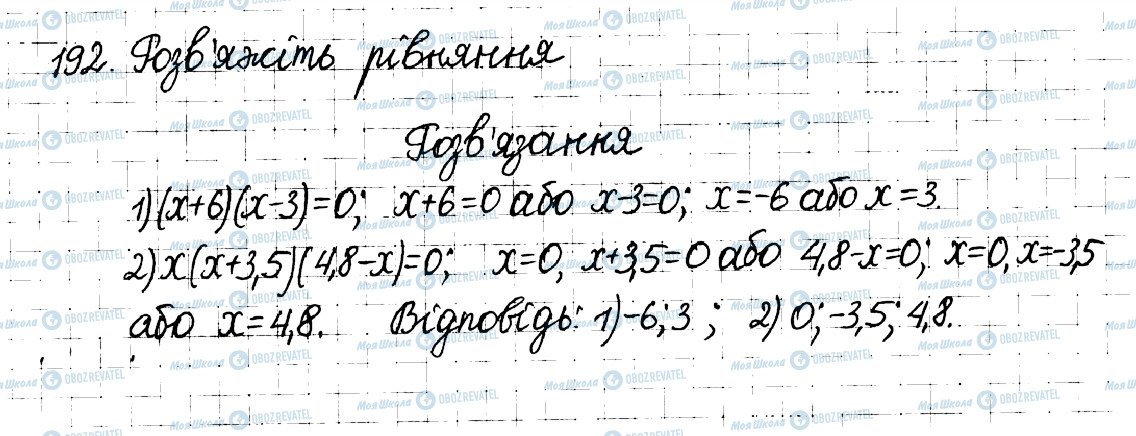 192. Розв'яжіть рівняння
Розв'язання
1) (x+6)(x-3)=0; x+6=0 або x-3=0; x=-6 або x=3.
2) x(x+3,5)(4,8-x)=0; x=0, x+3,5=0 або 4,8-x=0; x=0, x=-3,5
або x=4,8. Відповідь: 1) -6; 3; 2) 0; -3,5; 4,8.